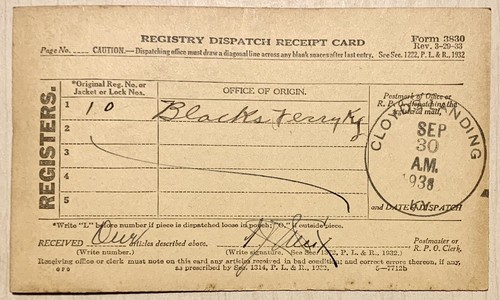 REGISTRY DISPATCH RECEIPT CARD
Form 3830
Rev. 3-29-33
Page No. CAUTION.—Dispatching office must draw a diagonal line across any blank spaces after last entry. See Sec. 1222, P. L. & R., 1932
REGISTERS.
*Original Reg. No. or
Jacket or Lock Nos.
OFFICE OF ORIGIN.
Postmark of Office or
R. P. O. dispatching the
registered mail,
1 10 Blacks Ferry Ky
2
3
4
5
SEP
30
A.M.
KY.
and DATE of DISPATCH
*Write "L" before number if piece is dispatched loose in pouch; "O," if outside piece.
RECEIVED One articles described above.
Postmaster or
R. P. O. Clerk.
(Write number.) (Write signature. See Sec. 1322, P. L. & R., 1932.)
Receiving office or clerk must note on this card any articles received in bad condition; and correct errors thereon, if any,
as prescribed by Sec. 1314, P. L. & R., 1932.
GPO 5—7712b